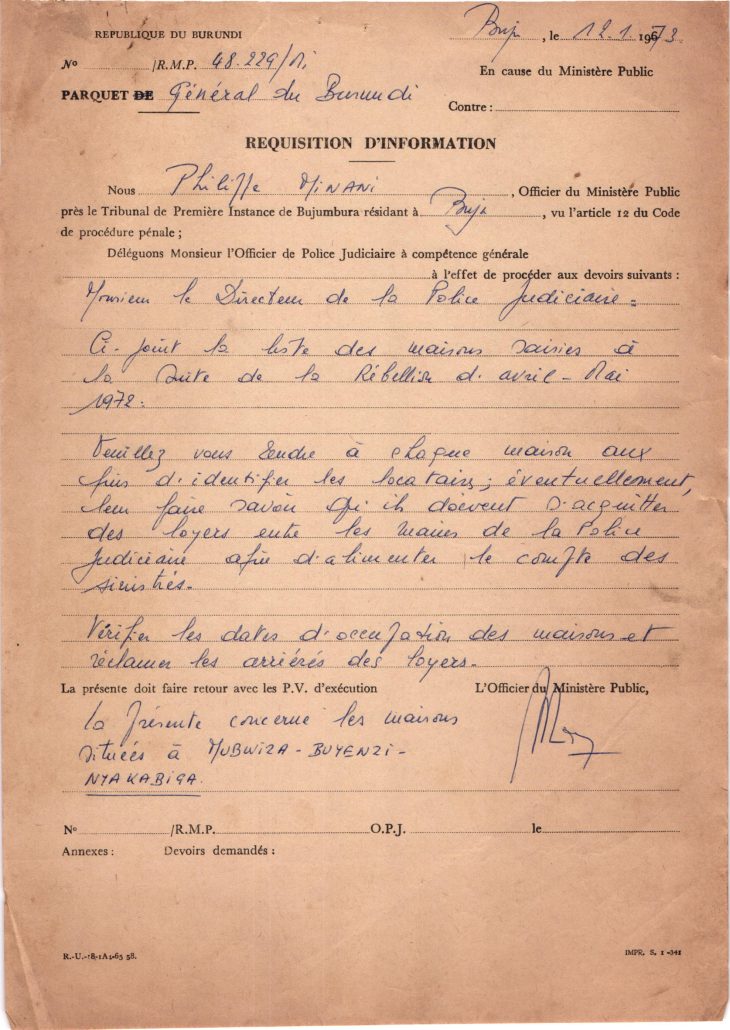 REPUBLIQUE DU BURUNDI
Buja, le 12.1.1973
No /R.M.P. 48.229/Mi
En cause du Ministère Public
PARQUET DE Général du Burundi
Contre :
REQUISITION D'INFORMATION
Nous Philippe MINANI, Officier du Ministère Public
près le Tribunal de Première Instance de Bujumbura résidant à Buja, vu l'article 12 du Code
de procédure pénale ;
Déléguons Monsieur l'Officier de Police Judiciaire à compétence générale
à l'effet de procéder aux devoirs suivants :
Monsieur le Directeur de la Police Judiciaire.
Ci-joint la liste des maisons saisies à
la suite de la Rébellion d'avril - Mai
1972.
Veuillez vous rendre à chaque maison aux
fins d'identifier les locataires ; éventuellement,
leur faire savoir qu'ils doivent s'acquitter
des loyers entre les mains de la Police
Judiciaire afin d'alimenter le compte des
sinistrés.
Vérifier les dates d'occupation des maisons et
réclamer les arriérés des loyers.
La présente doit faire retour avec les P.V. d'exécution
L'Officier du Ministère Public,
La présente concerne les maisons
situées à MUBWIZA - BUYENZI -
NYAKABIGA.
No /R.M.P. O.P.J. le
Annexes : Devoirs demandés :
R.-U.-18-1A4-65 58.
IMPR. S. 1 -341